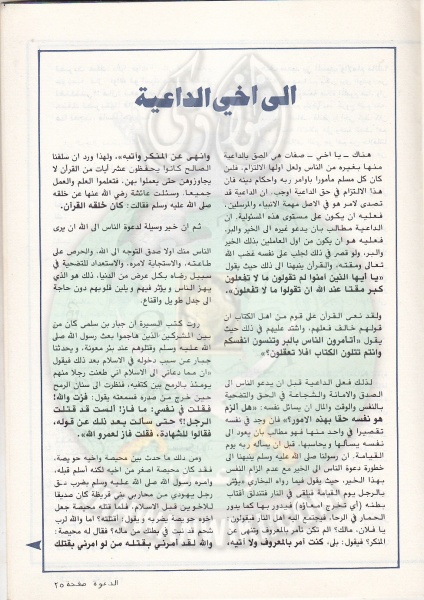 الى اخي الداعية
هناك - يا اخي - صفات هي الصق بالداعية
منها بغيره من الناس ولعل اولها الالتزام، فلين
كان كل مسلم مأمورا باوامر ربه واحكام دينه فان
هذا الالتزام في حق الداعية اوجب، ان الداعية قد
تصدى لامر هو في الاصل مهمة الانبياء والمرسلين،
فعليه ان يكون على مستوى هذه المسئولية، ان
الداعية مطالب بان يدعو غيره الى الخير والبر،
فعليه هو ان يكون من اول العاملين بذلك الخير
والبر، ولو قصر في ذلك لجلب على نفسه غضب الله
تعالى ومقته، والقرآن ينبهنا الى ذلك حيث يقول
«يا أيها الذين امنوا لم تقولون ما لا تفعلون
كبر مقتا عند الله ان تقولوا ما لا تفعلون».
ولقد نعى القرآن على قوم من اهل الكتاب ان
قولهم خالف فعلهم، واشتد عليهم في ذلك حيث
يقول «أتأمرون الناس بالبر وتنسون انفسكم
وانتم تتلون الكتاب افلا تعقلون؟»
لذلك فعلى الداعية قبل ان يدعو الناس الى
الصدق والامانة والشجاعة في الحق والتضحية
بالنفس والوقت والمال ان يسائل نفسه: «هل ألزم
هو نفسه حقا بهذه الامور؟» فان وجد في نفسه
تقصيرا في واحد منها فهو مطالب بان يعود الى
نفسه يسألها ويحاسبها، قبل ان يسأله ربه يوم
القيامة. ان رسولنا صلى الله عليه وسلم ينبهنا الى
خطورة دعوة الناس الى الخير مع عدم الزام النفس
بهذا الخير، حيث يقول فيما رواه البخاري «يؤتى
بالرجل يوم القيامة فيلقى في النار فتندلق أقتاب
بطنه (أي تخرج امعاؤه) فيدور بها كما يدور
الحمار في الرحا، فيجتمع اليه اهل النار فيقولون:
يا فلان، مالك؟ الم تكن تأمر بالمعروف وتنهى عن
المنكر؟ فيقول: بلى، كنت آمر بالمعروف ولا آتيه،
وانهى عن المنكر وآتيه»، ولهذا ورد ان سلفنا
الصالح كانوا يحفظون عشر آيات من القرآن لا
يجاوزوهن حتى يعملوا بهن، فتعلموا العلم والعمل
جميعا، وسئلت عائشة رضي الله عنها عن خلقه
صلى الله عليه وسلم فقالت: كان خلقه القرآن.
ثم ان خير وسيلة لدعوة الناس الى الله ان يرى
الناس منك اولا صدق التوجه الى الله، والحرص على
طاعته، والاستجابة لامره، والاستعداد للتضحية في
سبيل رضاه بكل عرض من الدنيا، ذلك هو الذي
يهز الناس ويؤثر فيهم ويلين قلوبهم دون حاجة
الى جدل طويل واقناع.
روت كتب السيرة ان جبار بن سلمى كان من
بين المشركين الذين هاجموا بعث رسول الله صلى
الله عليه وسلم وقتلوهم عند بئر معونة، ويحدثنا
جبار عن سبب دخوله في الاسلام بعد ذلك فيقول
«ان مما دعاني الى الاسلام اني طعنت رجلا منهم
يومئذ بالرمح بين كتفيه، فنظرت الى سنان الرمح
حين خرج من صدره فسمعته يقول: فزت والله!
فقلت في نفسي: ما فاز! ألست قد قتلت
الرجل!؟ حتى سألت بعد ذلك عن قوله،
فقالوا للشهادة، فقلت فاز لعمرو الله».
ومن ذلك ما حدث بين محيصة واخيه حويصة،
فقد كان محيصة اصغر من اخيه لكنه أسلم قبله،
وامره رسول الله صلى الله عليه وسلم بضرب عنق
رجل يهودي من محاربي بني قريظة كان صديقا
للاخوين قبل الاسلام، فلما قتله محيصة جعل
اخوه حويصة يضربه و يقول: أقتلته؟ أما والله لرب
شحم قد نبت في بطنك من ماله؟ فقال له محيصة:
والله لقد أمرني بقتله من لو امرني بقتلك
الدعوة صفحة ٢٥